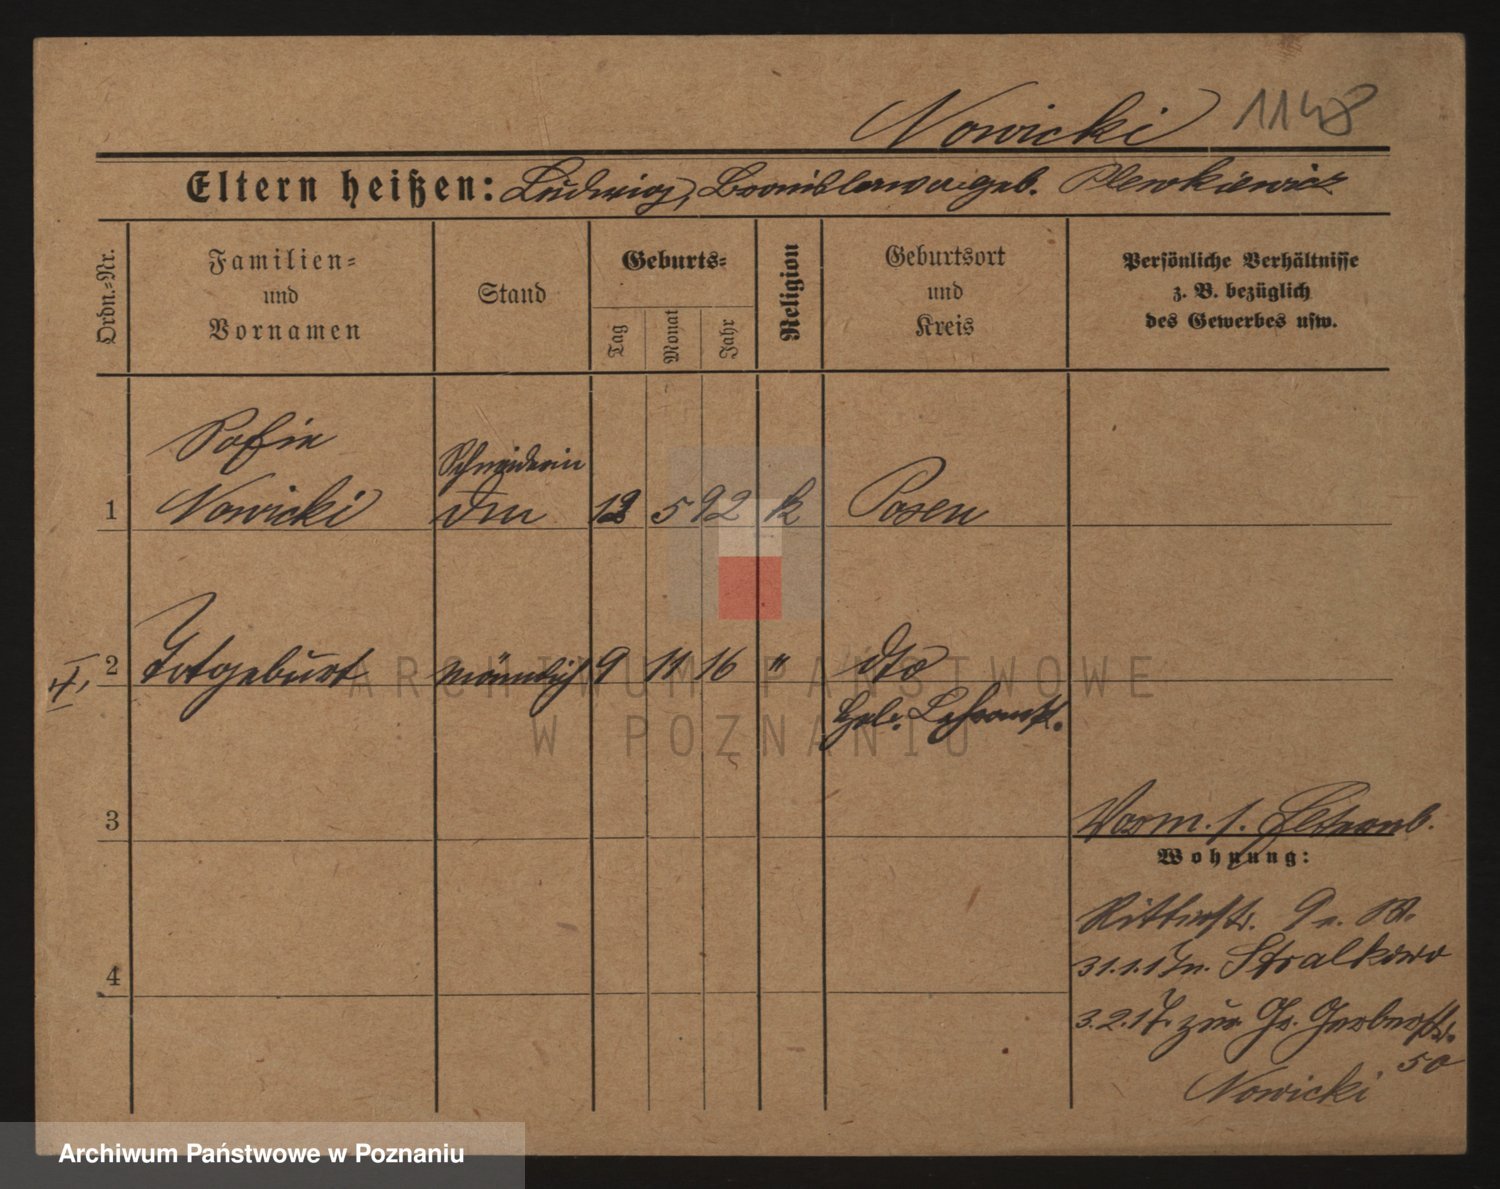 Nowicki 1148
Eltern heißen: Ludwig, Bronislawa geb. Plenkiewicz
Ordn.-Nr.
Familien-
und
Vornamen
Stand
Geburts-
Tag
Monat
Jahr
Religion
Geburtsort
und
Kreis
Persönliche Verhältnisse
z. B. bezüglich
des Gewerbes usw.
Sofie
Schneiderin
1 Nowicki 12 5 92 k Posen
2 Totgeburt männlich 9 11 16 " dto
I
Hebr. Lehranst.
3
Vorm. s.
Wohnung:
Ritterstr. 9
31.1.17 n. Stralkowo
4
3.2.17 zur. Gr. Gerberstr.
50
Nowicki
ARCHIWUM PAŃSTWOWE
W POZNANIU
Archiwum Państwowe w Poznaniu